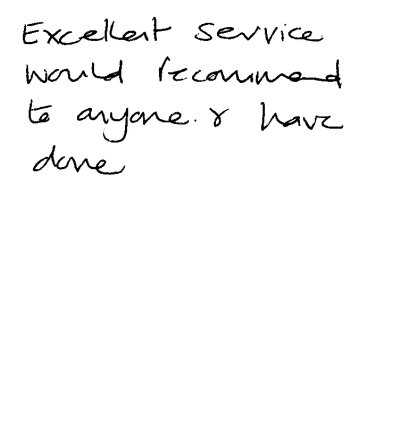 Excellent service
would recommend
to anyone. & have
done